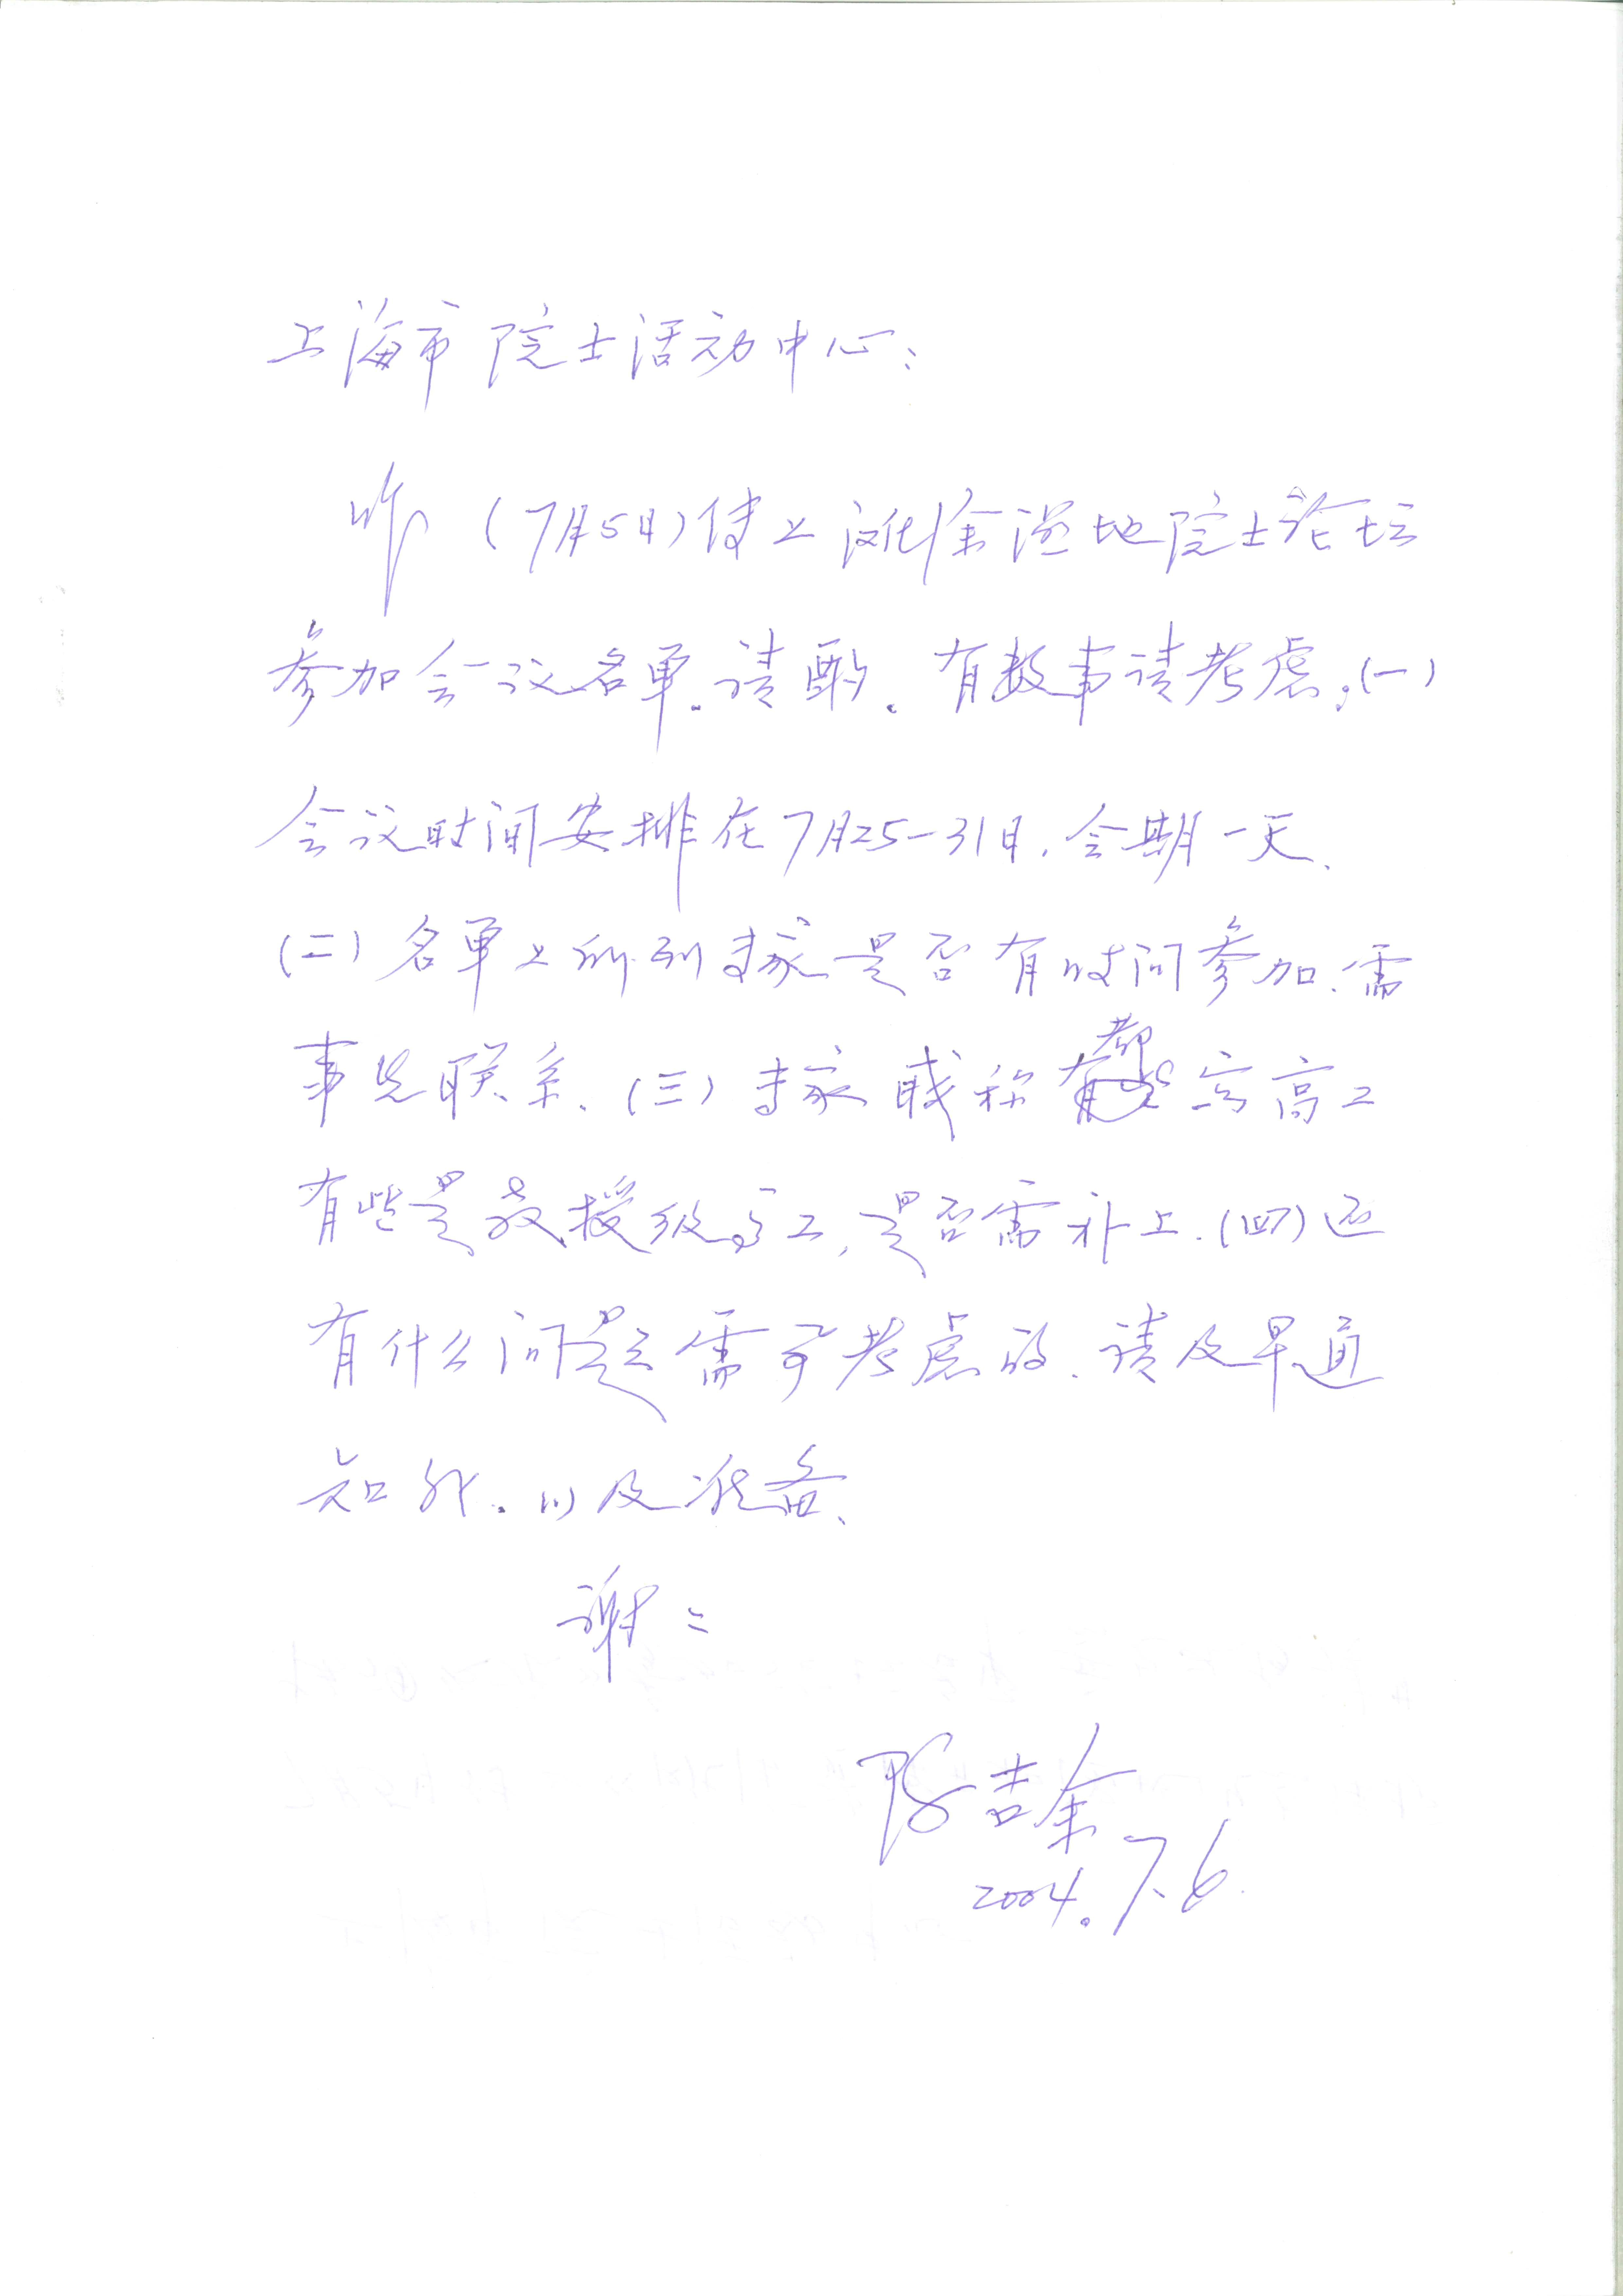 上海市院士活动中心：
昨（7月5日）传上滩涂湿地院士论坛
参加会议名单。请酌。有数事请考虑。（一）
会议时间安排在7月25-31日，会期一天、
（二）名单上所列专家是否有时间参加、需
事先联系、（三）专家职称都写高工
有些是教授级高工，是否需补上.（四）还
有什么问题需要考虑的、请及早通
知我。以及准备、
谢々
陈吉余
2004.7.6.